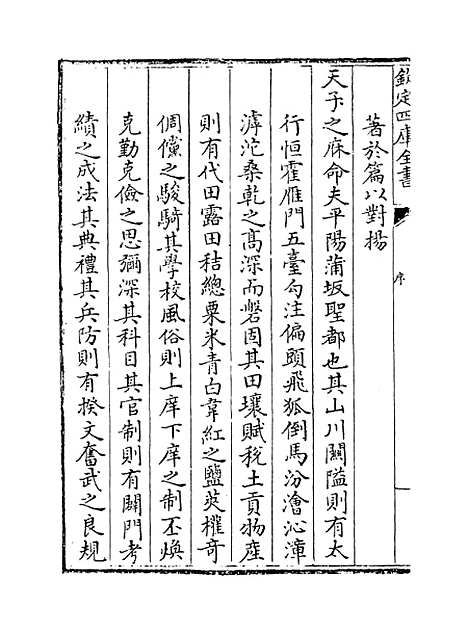 欽定四庫全書
序
著於篇以對揚
天子之庥命夫平陽蒲坂聖都也其山川闗隘則有太
行恒霍雁門五臺勾注偏頭飛狐倒馬汾澮沁漳
滹沱桑乾之髙深而磐固其田壤賦稅土貢物産
則有代田露田秸總粟米青白韋紅之鹽英櫂竒
倜儻之駿騎其學校風俗則上庠下庠之制丕煥
克勤克儉之思彌深其科目其官制則有闢門考
績之成法其典禮其兵防則有揆文奮武之良規